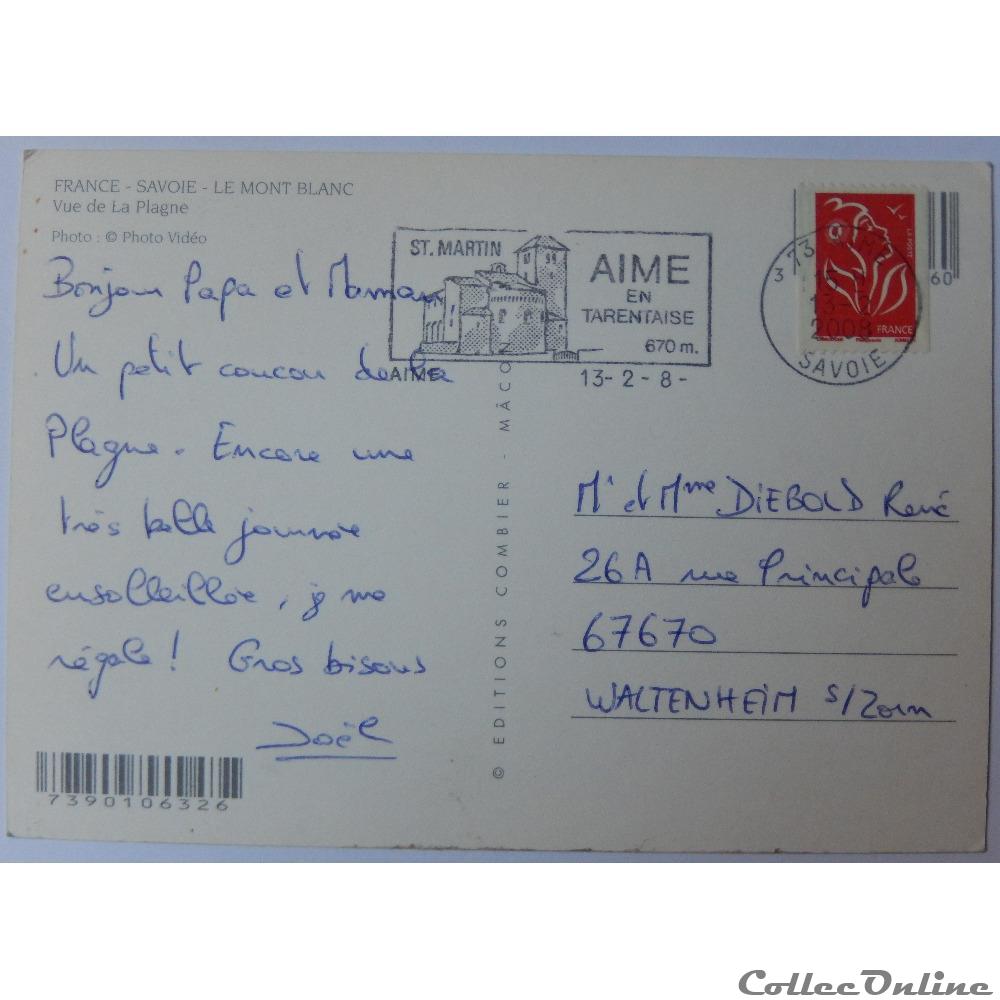 FRANCE - SAVOIE - LE MONT BLANC
Vue de La Plagne
Photo : © Photo Vidéo
Bonjour Papa et Maman
Un petit coucou de la
Plagne. Encore une
très belle journée
ensolleillée, je me
régale ! Gros bisous
Joël
7390106326
© EDITIONS COMBIER - MÂCON
ST. MARTIN
AIME
EN
TARENTAISE
670 m.
AIME
13-2-8-
3 73
2008
SAVOIE
LA POSTE
FRANCE
60
Mr et Mme DIEBOLD René
26A rue Principale
67670
WALTENHEIM s/Zorn
CollecOnline